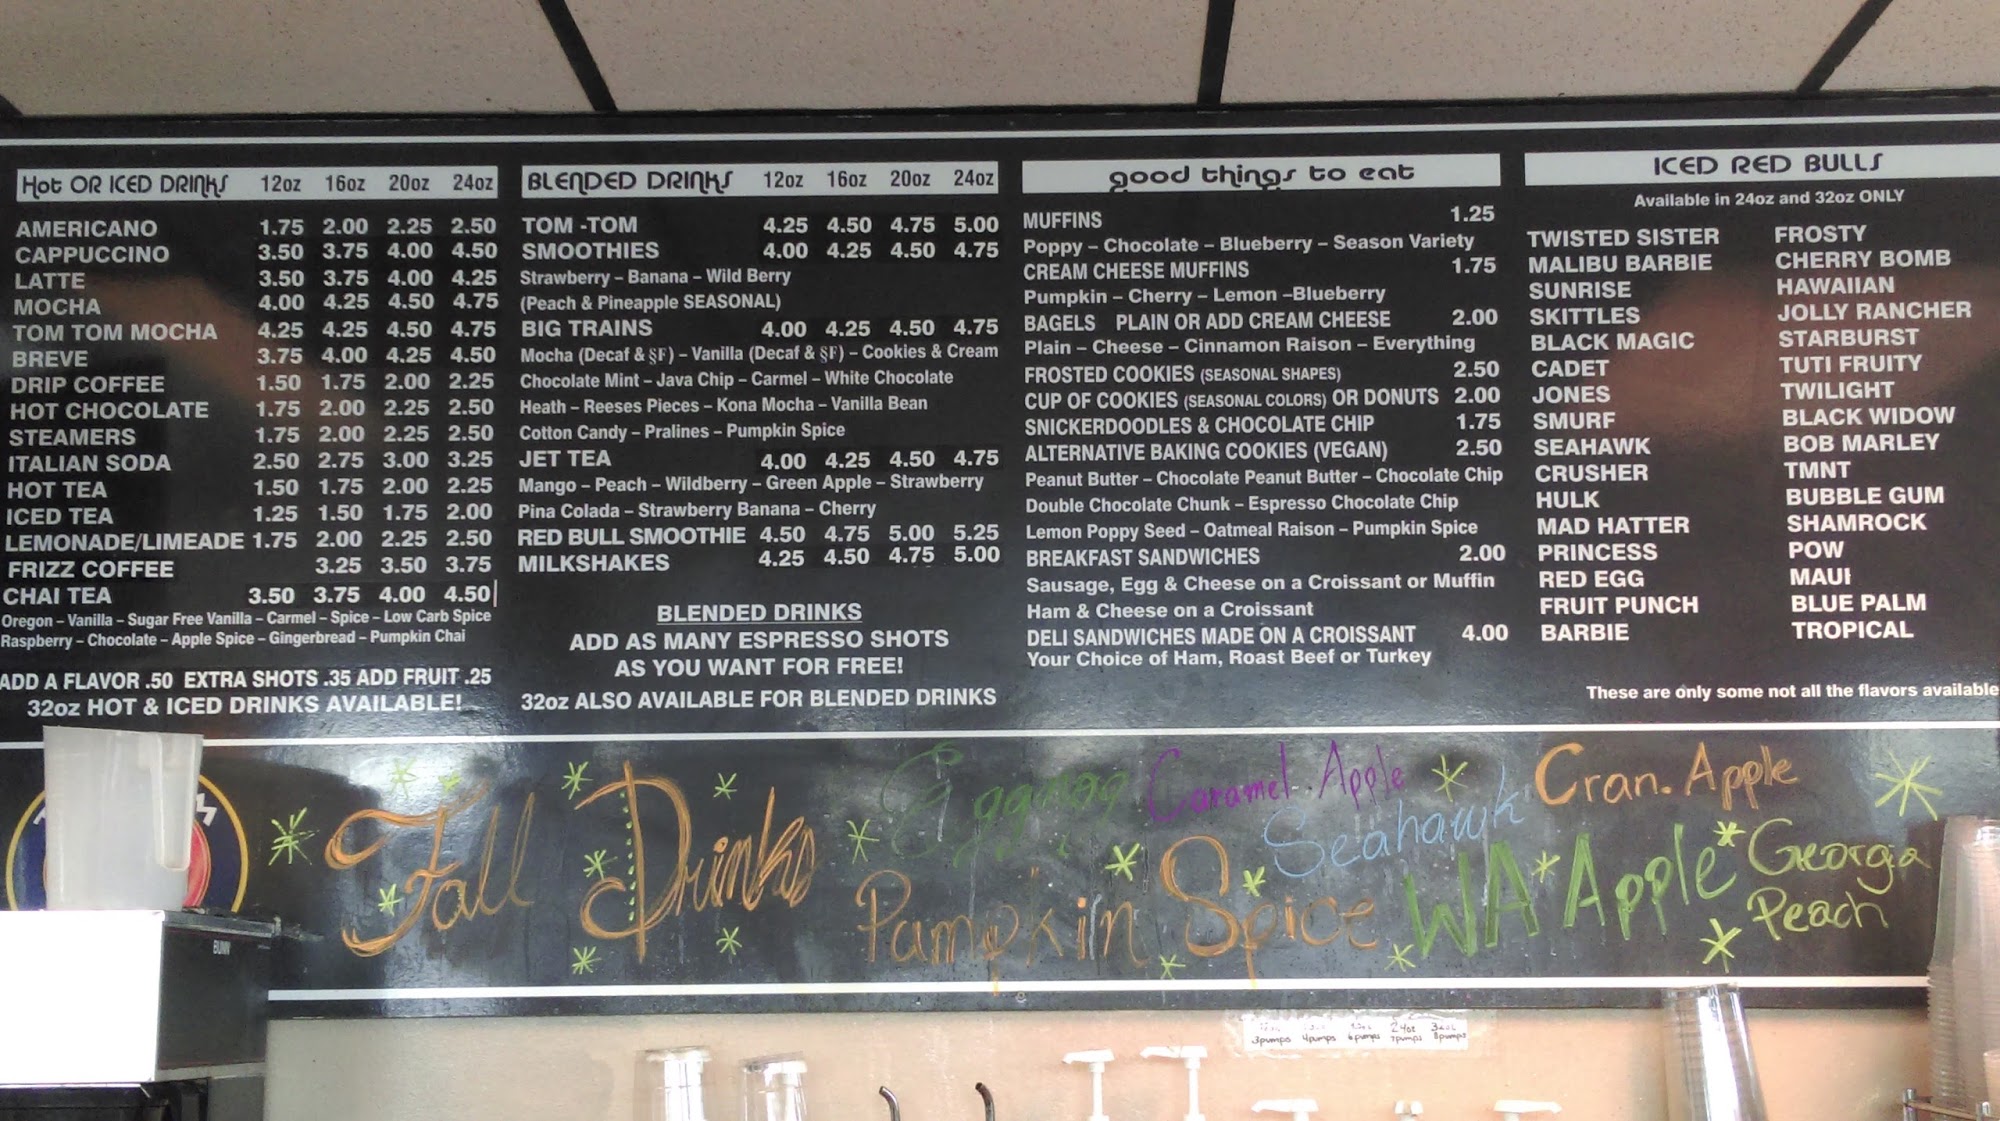 Hot OR ICED DRINKS 12oz 16oz 20oz 24oz
AMERICANO 1.75 2.00 2.25 2.50
CAPPUCCINO 3.50 3.75 4.00 4.50
LATTE 3.50 3.75 4.00 4.25
MOCHA 4.00 4.25 4.50 4.75
TOM TOM MOCHA 4.25 4.25 4.50 4.75
BREVE 3.75 4.00 4.25 4.50
DRIP COFFEE 1.50 1.75 2.00 2.25
HOT CHOCOLATE 1.75 2.00 2.25 2.50
STEAMERS 1.75 2.00 2.25 2.50
ITALIAN SODA 2.50 2.75 3.00 3.25
HOT TEA 1.50 1.75 2.00 2.25
ICED TEA 1.25 1.50 1.75 2.00
LEMONADE/LIMEADE 1.75 2.00 2.25 2.50
FRIZZ COFFEE 3.25 3.50 3.75
CHAI TEA 3.50 3.75 4.00 4.50
Oregon – Vanilla – Sugar Free Vanilla – Carmel – Spice – Low Carb Spice
Raspberry – Chocolate – Apple Spice – Gingerbread – Pumpkin Chai
ADD A FLAVOR .50 EXTRA SHOTS .35 ADD FRUIT .25
32oz HOT & ICED DRINKS AVAILABLE!
BLENDED DRINKS 12oz 16oz 20oz 24oz
TOM -TOM 4.25 4.50 4.75 5.00
SMOOTHIES 4.00 4.25 4.50 4.75
Strawberry – Banana – Wild Berry
(Peach & Pineapple SEASONAL)
BIG TRAINS 4.00 4.25 4.50 4.75
Mocha (Decaf & SF) – Vanilla (Decaf & SF) – Cookies & Cream
Chocolate Mint – Java Chip – Carmel – White Chocolate
Heath – Reeses Pieces – Kona Mocha – Vanilla Bean
Cotton Candy – Pralines – Pumpkin Spice
JET TEA 4.00 4.25 4.50 4.75
Mango – Peach – Wildberry – Green Apple – Strawberry
Pina Colada – Strawberry Banana – Cherry
RED BULL SMOOTHIE 4.50 4.75 5.00 5.25
MILKSHAKES 4.25 4.50 4.75 5.00
BLENDED DRINKS
ADD AS MANY ESPRESSO SHOTS
AS YOU WANT FOR FREE!
32oz ALSO AVAILABLE FOR BLENDED DRINKS
good things to eat
MUFFINS 1.25
Poppy – Chocolate – Blueberry – Season Variety
CREAM CHEESE MUFFINS 1.75
Pumpkin – Cherry – Lemon –Blueberry
BAGELS PLAIN OR ADD CREAM CHEESE 2.00
Plain – Cheese – Cinnamon Raison – Everything
FROSTED COOKIES (SEASONAL SHAPES) 2.50
CUP OF COOKIES (SEASONAL COLORS) OR DONUTS 2.00
SNICKERDOODLES & CHOCOLATE CHIP 1.75
ALTERNATIVE BAKING COOKIES (VEGAN) 2.50
Peanut Butter – Chocolate Peanut Butter – Chocolate Chip
Double Chocolate Chunk – Espresso Chocolate Chip
Lemon Poppy Seed – Oatmeal Raison – Pumpkin Spice
BREAKFAST SANDWICHES 2.00
Sausage, Egg & Cheese on a Croissant or Muffin
Ham & Cheese on a Croissant
DELI SANDWICHES MADE ON A CROISSANT 4.00
Your Choice of Ham, Roast Beef or Turkey
ICED RED BULLS
Available in 24oz and 32oz ONLY
TWISTED SISTER FROSTY
MALIBU BARBIE CHERRY BOMB
SUNRISE HAWAIIAN
SKITTLES JOLLY RANCHER
BLACK MAGIC STARBURST
CADET TUTI FRUITY
JONES TWILIGHT
SMURF BLACK WIDOW
SEAHAWK BOB MARLEY
CRUSHER TMNT
HULK BUBBLE GUM
MAD HATTER SHAMROCK
PRINCESS POW
RED EGG MAUI
FRUIT PUNCH BLUE PALM
BARBIE TROPICAL
These are only some not all the flavors available
Fall Drinks
Eggnog Caramel Apple Cran. Apple
Seahawk
Pumpkin Spice WA Apple Georgia
Peach
BUNN
24oz
3pumps 4pumps 6pumps 7pumps 8pumps